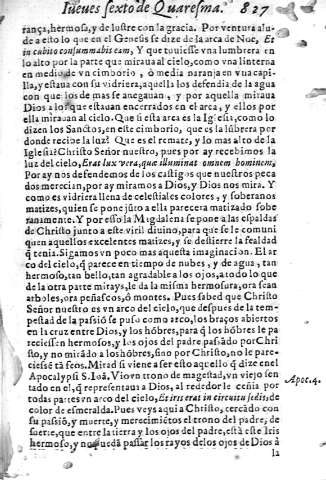 Iueues sexto de Quaresma. 827
rança, hermoso, y de lustre con la gracia. Por ventura alu-
de a esto lo que en el Genesis se dize de la arca de Noe, Et
in cubito consummabis eam, Y que tuuiesse vna lumbrera en
lo alto por la parte que miraua al cielo, como vna linterna
en medio de vn cimborio, ò media naranja en vna capi-
lla, y estaua con su vidriera, aquella los defendia de la agua
con que los demas se anegauan, y por aquella miraua
Dios a los que estauan encerrados en el arca, y ellos por
ella mirauan al cielo. Que si esta arca es la Iglesia, como lo
dizen los Sanctos, en este cimborio, que es la lũbrera por
donde recibe la luz? Que es el remate, y lo mas alto de la
Iglesia? Christo Señor nuestro, pues por ay recebimos la
luz del cielo, Erat lux vera, que illuminat omnem hominem,
Por ay nos defendemos de los castigos que nuestros peca
dos merecian, por ay miramos a Dios, y Dios nos mira. Y
como es vidriera llena de celestiales colores, y soberanos
matizes, quien se pone jũto a ella parecera matizado sobe
ranamente. Y por esso la Magdalena se pone a las espaldas
de Christo junto a este viril diuino, para que se le comuni
quen aquellos excelentes matizes, y se destierre la fealdad
q̃ tenia. Sigamos vn poco mas aquesta imaginacion. El ar
co del cielo, q̃ parece en tiempo de nubes, y de agua, tan
hermoso, tan bello, tan agradable a los ojos, a todo lo que
de la otra parte mirays, le da la misma hermosura, ora sean
arboles, ora peñascos, ò montes. Pues sabed que Christo
Señor nuestro es vn arco del cielo, que despues de la tem-
pestad de la passiõ se puso como arco, los braços abiertos
en la cruz entre Dios, y los hõbres, para q̃ los hõbres le pa
reciessen hermosos, y los ojos del padre passado por Chri
sto, y no mirãdo a los hõbres, sino por Christo, no le pare-
ciessẽ tã feos. Mirad si viene a ser esto aquello q̃ dize en el
Apocalypsi S. Ioã. Vio vn trono de magestad, vn viejo sen
tado en el, q̃ representaua a Dios, al rededor le ceñia por
todas partes vn arco del cielo, Et iris erat in circuitu sedis, de
Apoc. 4.
color de esmeralda. Pues veys aqui a Christo, cercado con
su passiõ, y muerte, y merecimiẽtos el trono del padre, de
suerte, que entre la tierra y los ojos del padre, està este Iris
hermoso, y no puedã passar los rayos de los ojos de Dios à
la